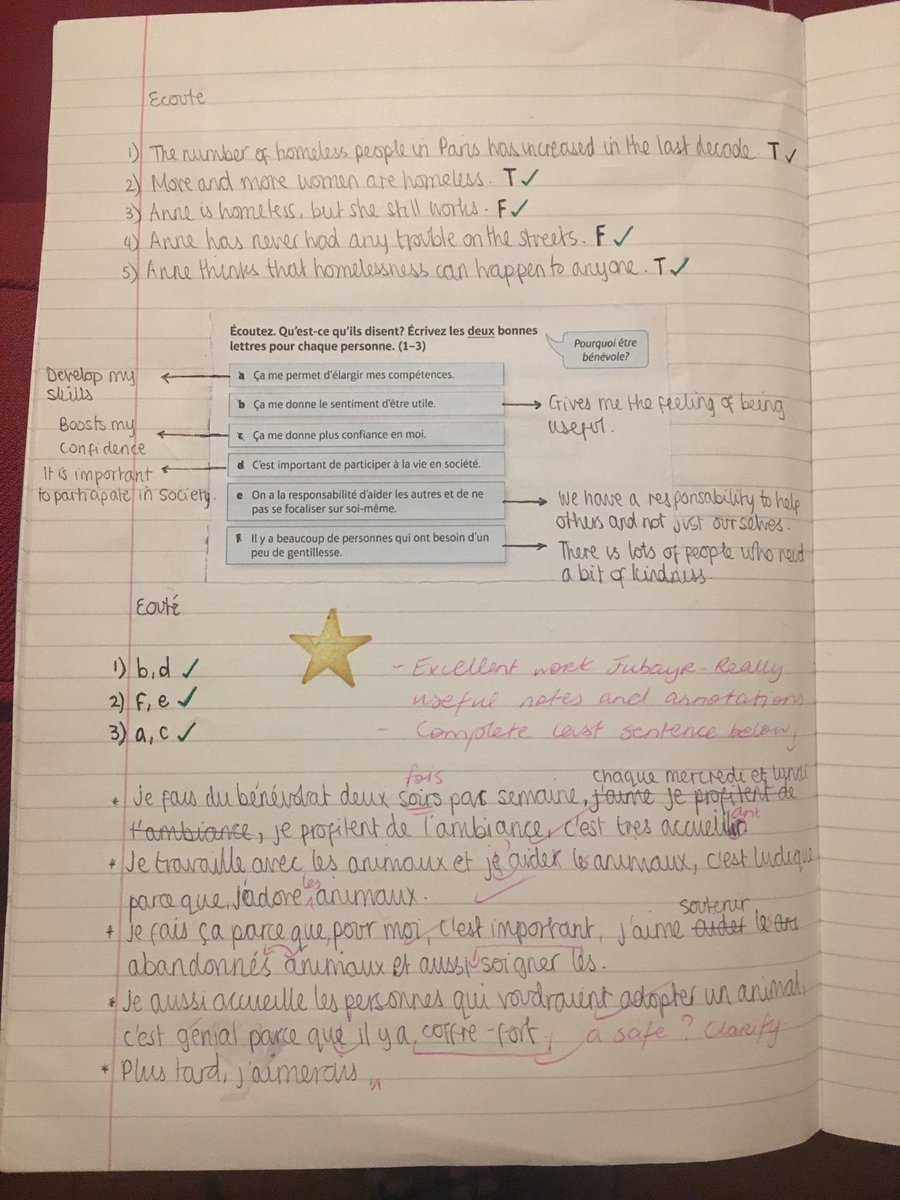 Ecouté
1) The number of homeless people in Paris has increased in the last decade T ✓
2) More and more women are homeless. T ✓
3) Anne is homeless, but she still works. F ✓
4) Anne has never had any trouble on the streets. F ✓
5) Anne thinks that homelessness can happen to anyone. T ✓
Écoutez. Qu'est-ce qu'ils disent? Écrivez les deux bonnes
lettres pour chaque personne. (1–3)
Pourquoi être
bénévole?
a Ça me permet d'élargir mes compétences.
b Ça me donne le sentiment d'être utile.
c Ça me donne plus confiance en moi.
d C'est important de participer à la vie en société.
e On a la responsabilité d'aider les autres et de ne
pas se focaliser sur soi-même.
f Il y a beaucoup de personnes qui ont besoin d'un
peu de gentillesse.
Develop my
skills
Boosts my
confidence
It is important
to participate in society.
Gives me the feeling of being
useful.
We have a responsability to help
others and not just ourselves.
There is lots of people who need
a bit of kindness.
Eouté
1) b, d ✓
2) f, e ✓
3) a, c ✓
- Excellent work Jubayr. Really
useful notes and annotations
- Complete last sentence below,
fois
chaque mercredi et lundi
* Je fais du bénévolat deux soirs par semaine, j'aime je profitent de
l'ambiance, je profitent de l'ambiance, c'est tres accueill
ant
* Je travaille avec les animaux et je aider les animaux, c'est ludique
les
parce que, j'adore animaux.
soutenir
* Je fais ça parce que, pour moi, c'est important, j'aime aider les
abandonnés animaux et aussi soigner les.
* Je aussi accueille les personnes qui voudraient adopter un animal,
c'est génial parce que il y a, coffre-fort, a safe? Clarify
* Plus tard, j'aimerais